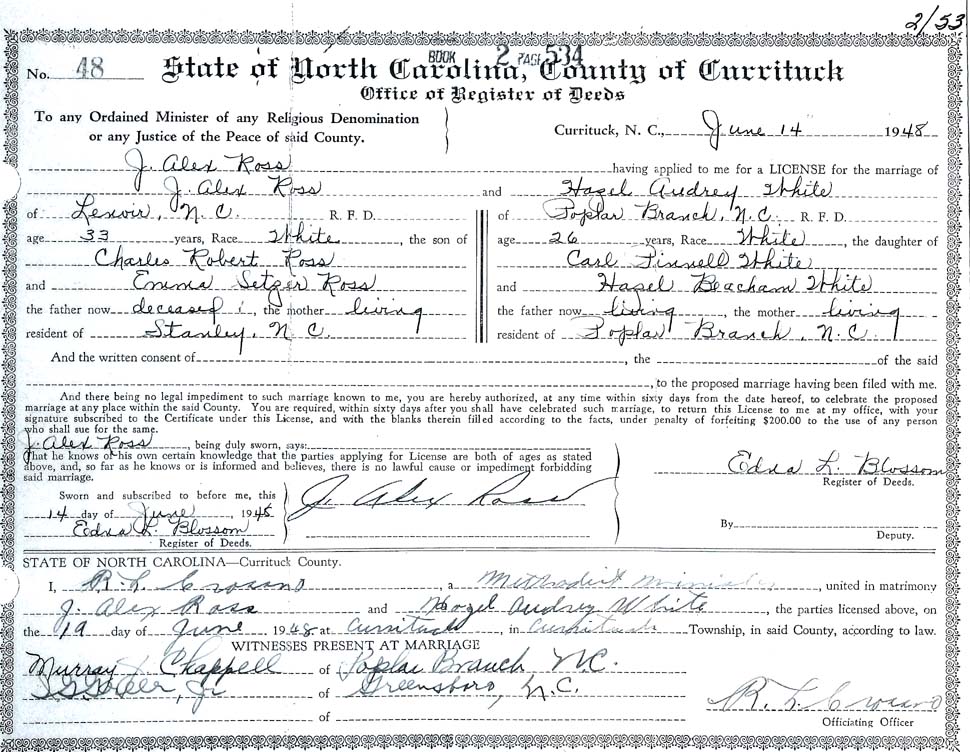 2/53
BOOK 2 PAGE 534
No. 48 State of North Carolina, County of Currituck
Office of Register of Deeds
To any Ordained Minister of any Religious Denomination
or any Justice of the Peace of said County.
Currituck, N. C., June 14 1948
J. Alex Ross having applied to me for a LICENSE for the marriage of
J. Alex Ross and Hazel Audrey White
of Lenoir, N. C. R. F. D. of Poplar Branch, N. C. R. F. D.
age 33 years, Race White, the son of age 26 years, Race White, the daughter of
Charles Robert Ross Carl Pinnell White
and Emma Setzer Ross and Hazel Beacham White
the father now deceased, the mother living the father now living, the mother living
resident of Stanley, N. C. resident of Poplar Branch, N. C.
And the written consent of , the of the said
, to the proposed marriage having been filed with me.
And there being no legal impediment to such marriage known to me, you are hereby authorized, at any time within sixty days from the date hereof, to celebrate the proposed
marriage at any place within the said County. You are required, within sixty days after you shall have celebrated such marriage, to return this License to me at my office, with your
signature subscribed to the Certificate under this License, and with the blanks therein filled according to the facts, under penalty of forfeiting $200.00 to the use of any person
who shall sue for the same.
J. Alex Ross, being duly sworn, says:
That he knows of his own certain knowledge that the parties applying for License are both of ages as stated
above, and, so far as he knows or is informed and believes, there is no lawful cause or impediment forbidding
said marriage.
Edna L. Blossom
Register of Deeds.
Sworn and subscribed to before me, this
14 day of June, 1948
Edna L. Blossom
Register of Deeds.
J. Alex Ross
By
Deputy.
STATE OF NORTH CAROLINA—Currituck County.
I, R. L. Crossno a Methodist Minister, united in matrimony
J. Alex Ross and Hazel Audrey White, the parties licensed above, on
the 19 day of June 1948 at Currituck, in Currituck Township, in said County, according to law.
WITNESSES PRESENT AT MARRIAGE
Murray Chappell of Poplar Branch N.C.
Jr of Greensboro, N.C.
of
R. L. Crossno
Officiating Officer